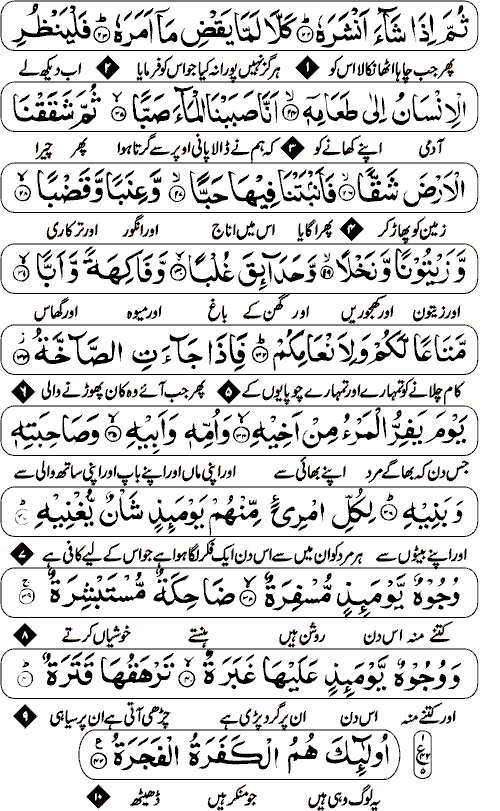 ثُمَّ اِذَا شَآءَ اَنْشَرَهٗ ﴿۲۲﴾ كَلَّا لَمَّا يَقْضِ مَآ اَمَرَهٗ ﴿۲۳﴾ فَلْيَنْظُرِ
پھر جب چاہا اٹھا نکالا اس کو ۱ ہرگز نہیں پورا نہ کیا جو اس کو فرمایا ۲ اب دیکھ لے
الْاِنْسَانُ اِلٰى طَعَامِهٖٓ ﴿۲۴﴾ اَنَّا صَبَبْنَا الْمَآءَ صَبًّا ﴿۲۵﴾ ثُمَّ شَقَقْنَا
آدمی اپنے کھانے کو ۳ کہ ہم نے ڈالا پانی اوپر سے گرتا ہوا پھر چیرا
الْاَرْضَ شَقًّا ﴿۲۶﴾ فَاَنْۢبَتْنَا فِيْهَا حَبًّا ﴿۲۷﴾ وَّعِنَبًا وَّقَضْبًا ﴿۲۸﴾
زمین کو پھاڑ کر ۴ پھر اگایا اس میں اناج اور انگور اور ترکاری
وَّزَيْتُوْنًا وَّنَخْلًا ﴿۲۹﴾ وَّحَدَآئِقَ غُلْبًا ﴿۳۰﴾ وَّفَاكِهَةً وَّاَبًّا ﴿۳۱﴾
اور زیتون اور کھجوریں اور گھن کے باغ اور میوہ اور گھاس
مَّتَاعًا لَّكُمْ وَلِاَنْعَامِكُمْ ﴿۳۲﴾ فَاِذَا جَآءَتِ الصَّآخَّةُ ﴿۳۳﴾
کام چلانے کو تمہارے اور تمہارے چوپایوں کے ۵ پھر جب آئے وہ کان پھوڑنے والی ۶
يَوْمَ يَفِرُّ الْمَرْءُ مِنْ اَخِيْهِ ﴿۳۴﴾ وَاُمِّهٖ وَاَبِيْهِ ﴿۳۵﴾ وَصَاحِبَتِهٖ
جس دن کہ بھاگے مرد اپنے بھائی سے اور اپنی ماں اور اپنے باپ اور اپنی ساتھ والی سے
وَبَنِيْهِ ﴿۳۶﴾ لِكُلِّ امْرِئٍ مِّنْهُمْ يَوْمَئِذٍ شَاْنٌ يُّغْنِيْهِ ﴿۳۷﴾
اور اپنے بیٹوں سے ہر مرد کو ان میں سے اس دن ایک فکر لگا ہوا ہے جو اس کے لیے کافی ہے ۷
وُجُوْهٌ يَّوْمَئِذٍ مُّسْفِرَةٌ ﴿۳۸﴾ ضَاحِكَةٌ مُّسْتَبْشِرَةٌ ﴿۳۹﴾
کتنے منہ اس دن روشن ہیں ہنستے خوشیاں کرتے ۸
وَوُجُوْهٌ يَّوْمَئِذٍ عَلَيْهَا غَبَرَةٌ ﴿۴۰﴾ تَرْهَقُهَا قَتَرَةٌ ﴿۴۱﴾
اور کتنے منہ اس دن ان پر گرد پڑی ہے چڑھی آتی ہے ان پر سیاہی ۹
اُولٰٓئِكَ هُمُ الْكَفَرَةُ الْفَجَرَةُ ﴿۴۲﴾
یہ لوگ وہی ہیں جو منکر ہیں ڈھیٹھ ۱۰